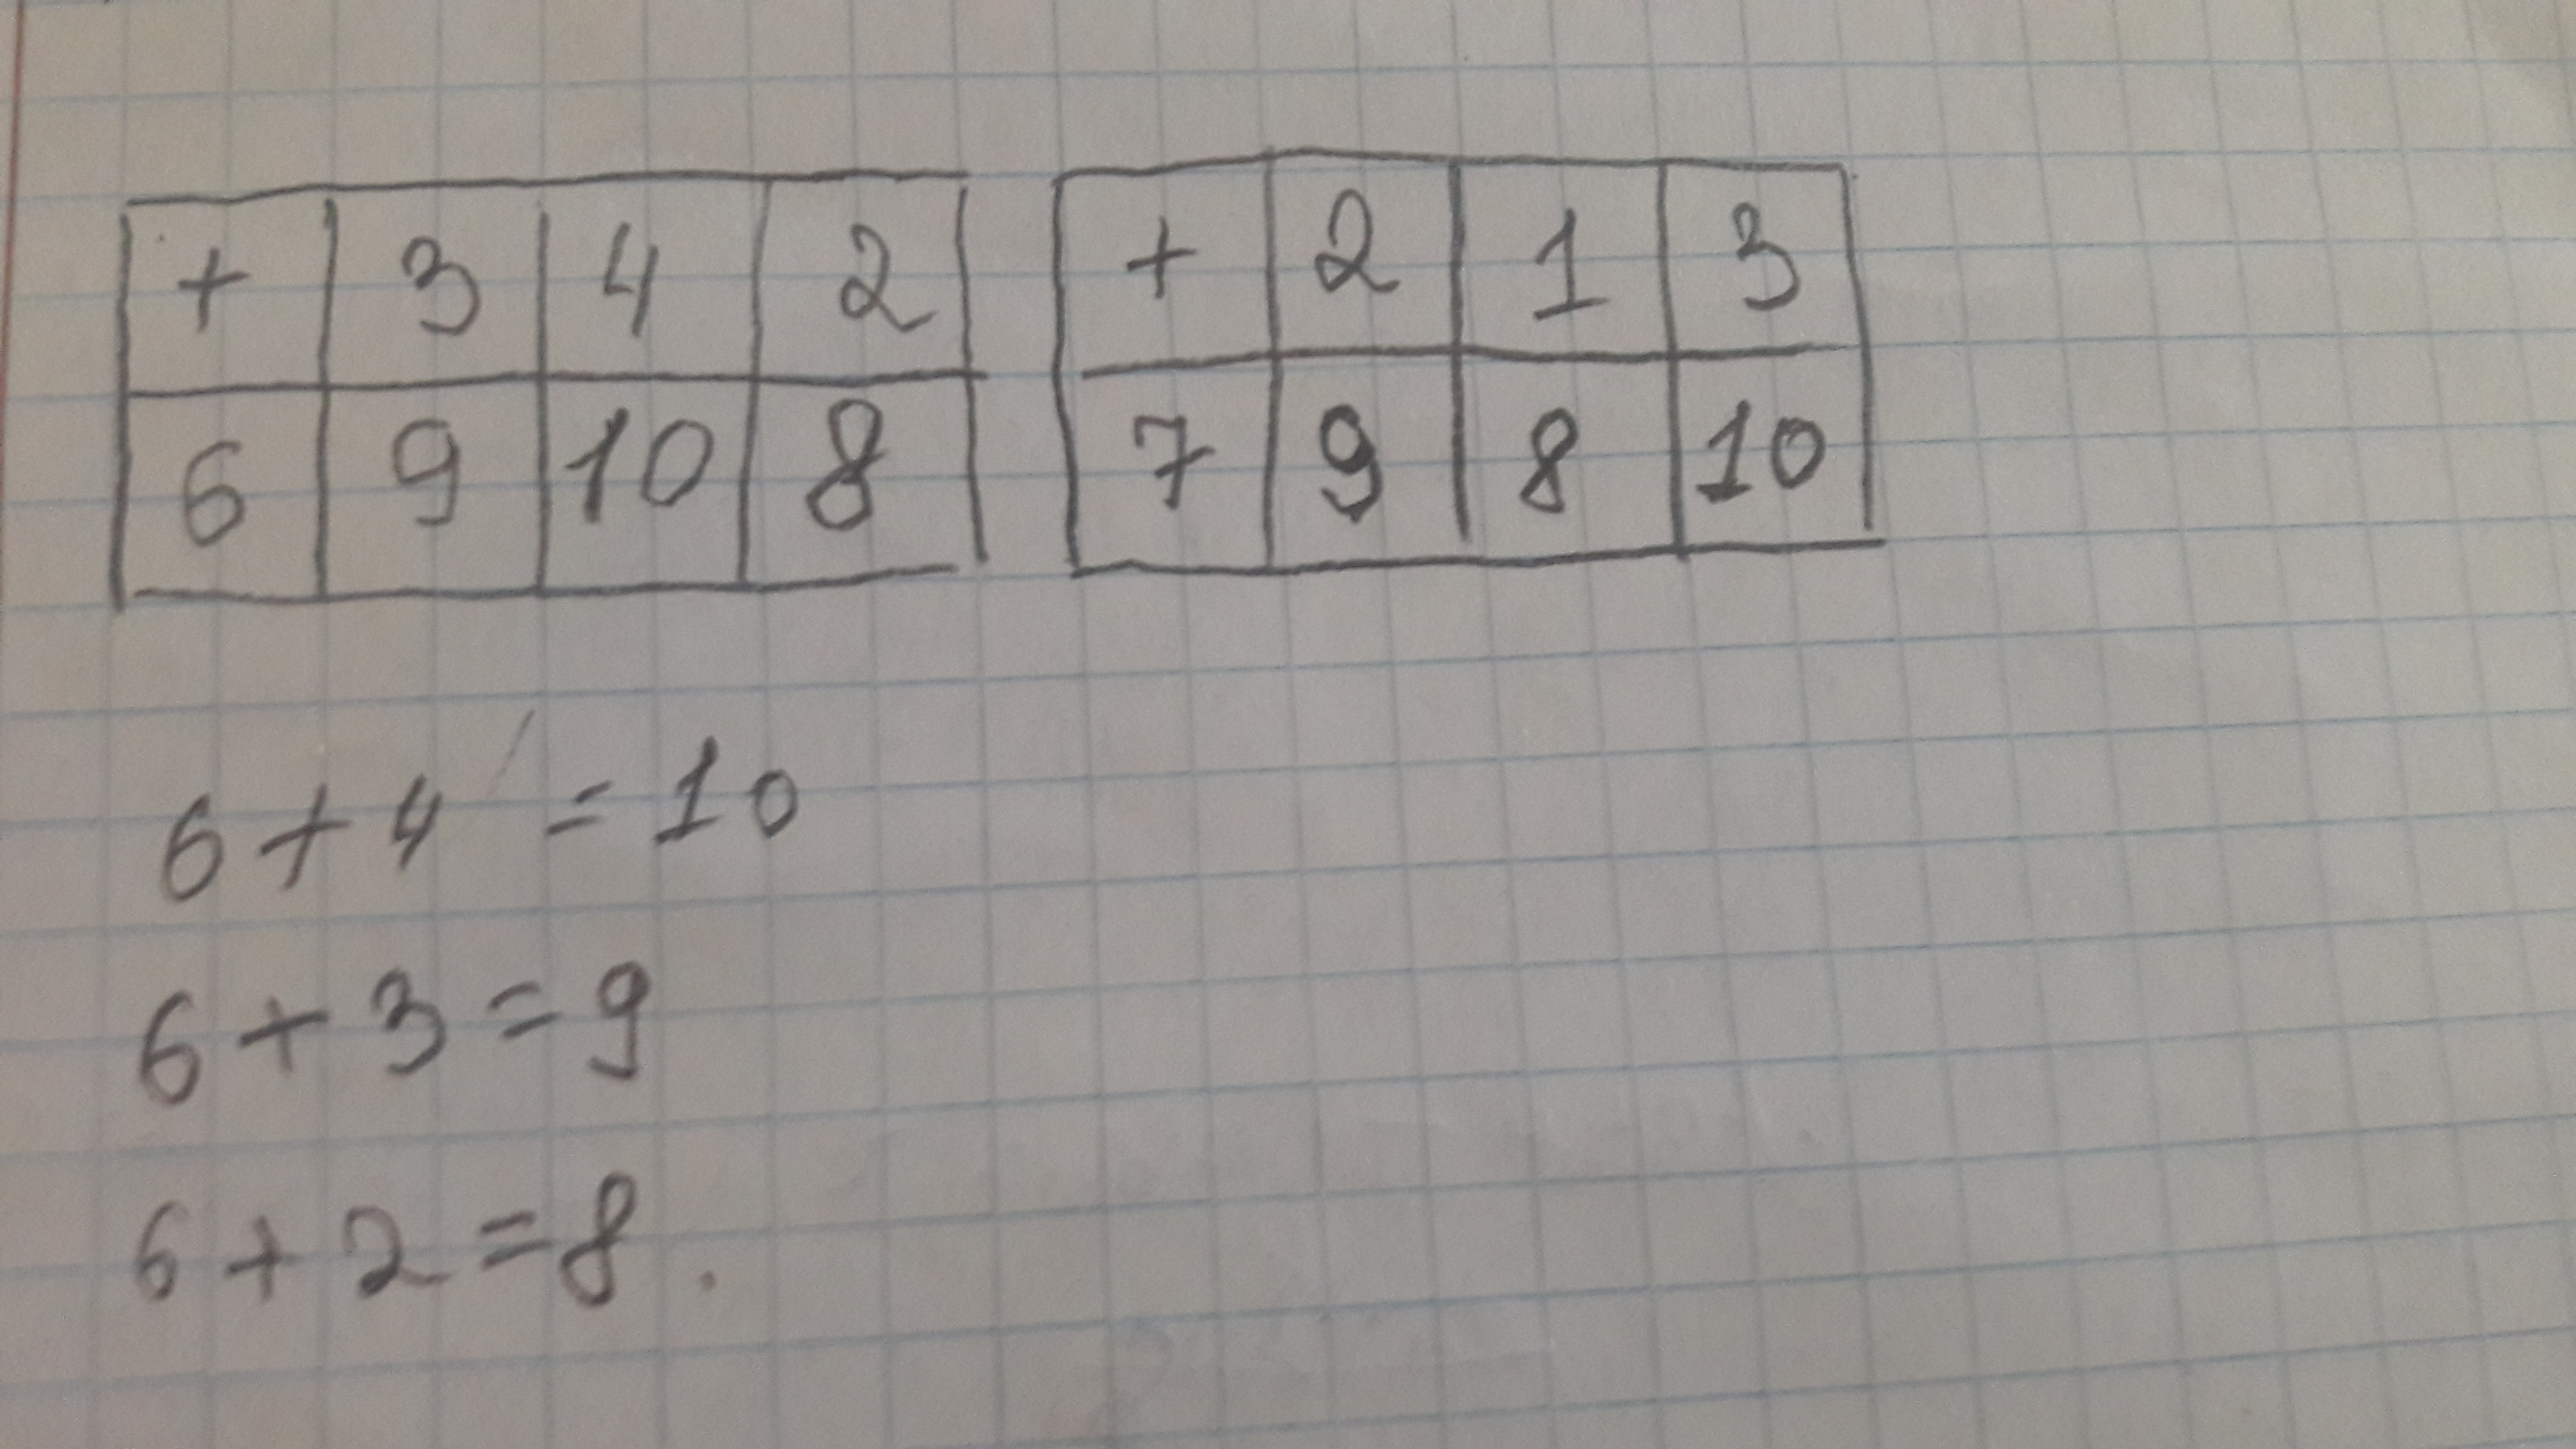 + 3 4 2 + 2 1 3
6 9 10 8 7 9 8 10
6 + 4 = 10
6 + 3 = 9
6 + 2 = 8.